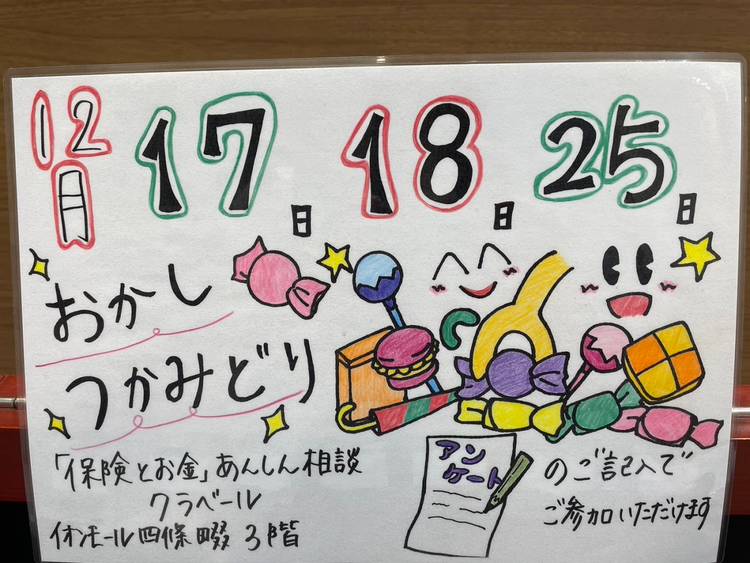 12月 17日 18日 25日
おかし
つかみどり
「保険とお金」あんしん相談
クラベール
イオンモール四條畷 3階
アンケート
のご記入で
ご参加いただけます